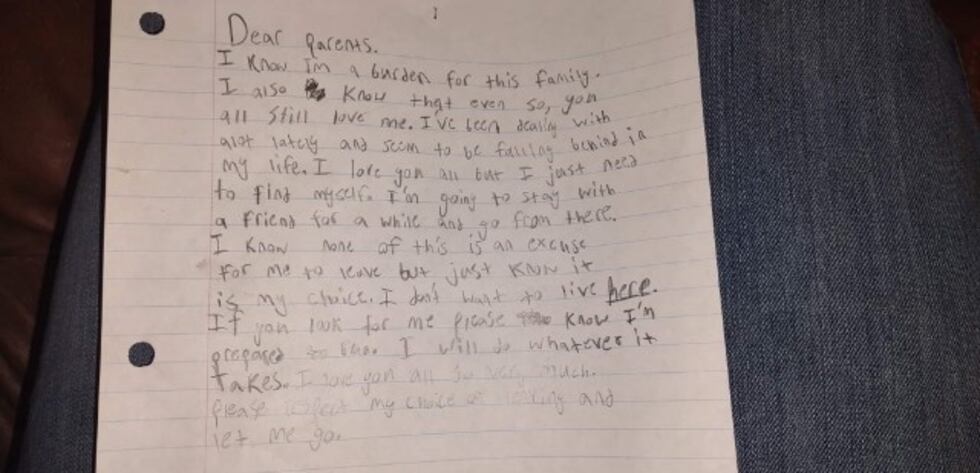 1
Dear Parents.
I Know Im a burden for this family.
I also Know that even so, you
all still love me. I've been dealing with
alot lately and seem to be falling behind in
my life. I love you all but I just need
to find myself. I'm going to stay with
a friend for a while and go from there.
I Know none of this is an excuse
for me to leave but just Know it
is my choice. I don't want to live here.
If you look for me please Know I'm
prepared to I will do whatever it
takes. I love you all so very much.
please respect my choice of leaving and
let me go.